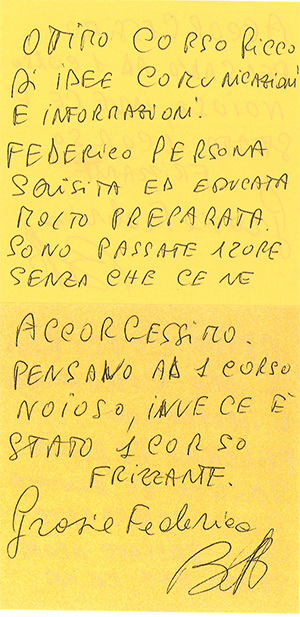 OTTIMO CORSO RICCO
DI IDEE COMUNICAZIONI
E INFORMAZIONI.
FEDERICO PERSONA
SQUISITA ED EDUCATA
MOLTO PREPARATA.
SONO PASSATE 12 ORE
SENZA CHE CE NE
ACCORGESSIMO.
PENSAVO AD 1 CORSO
NOIOSO, INVECE È
STATO 1 CORSO
FRIZZANTE.
Grazie Federico